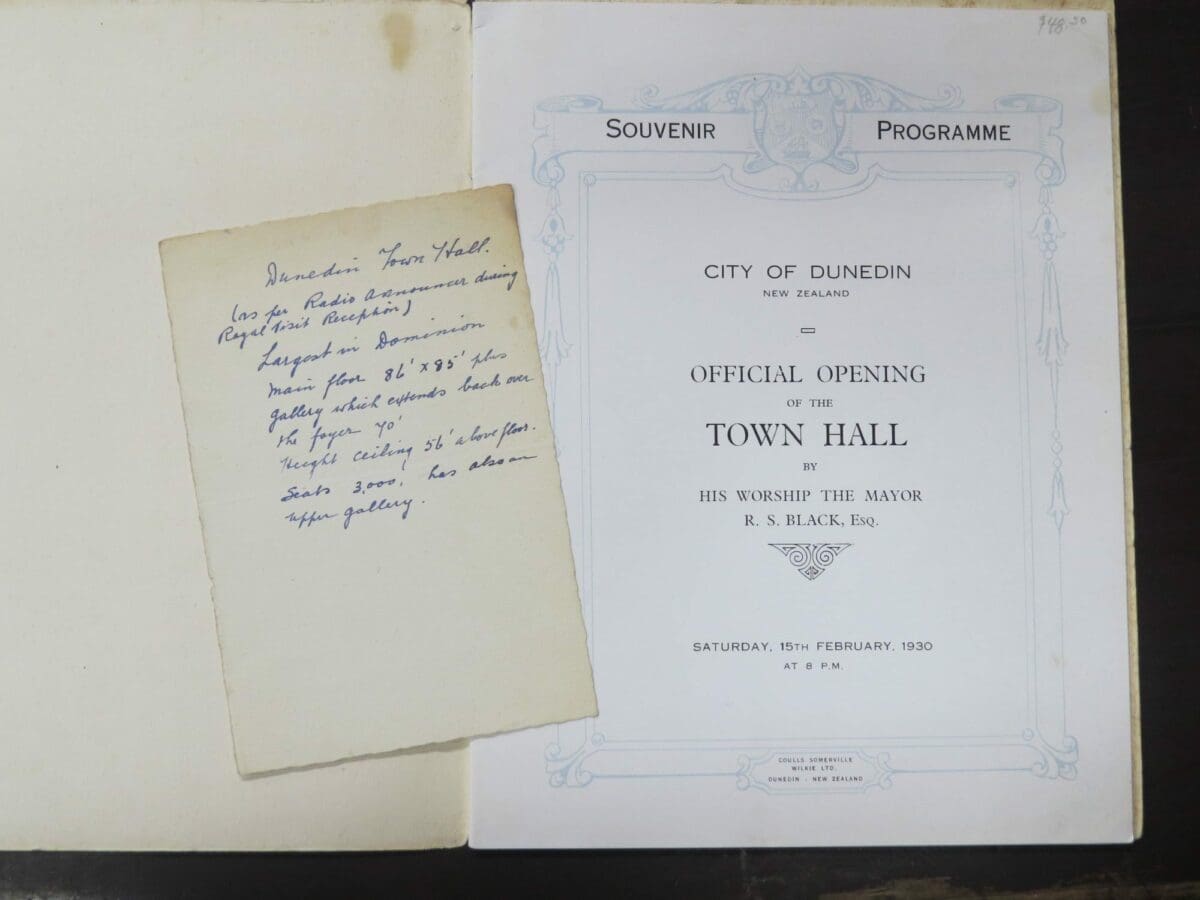 Dunedin Town Hall.
(as per Radio Announcer during
Royal Visit Reception)
Largest in Dominion
Main floor 86' x 85' plus
gallery which extends back over
the foyer 70'
Height ceiling 56' above floor.
Seats 3,000, has also an
upper gallery.
$48.50
SOUVENIR PROGRAMME
CITY OF DUNEDIN
NEW ZEALAND
OFFICIAL OPENING
OF THE
TOWN HALL
BY
HIS WORSHIP THE MAYOR
R. S. BLACK, Esq.
SATURDAY, 15TH FEBRUARY, 1930
AT 8 P.M.
COULLS SOMERVILLE
WILKIE LTD.
DUNEDIN - NEW ZEALAND